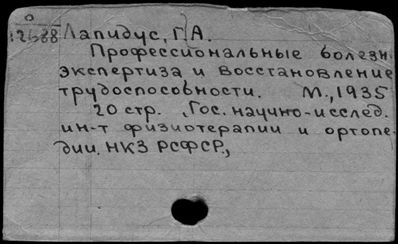 О
12688 Лапидус, Г.А.
Профессиональные болезн.
экспертиза и восстановление
трудоспособности. М., 1935
20 стр. , Гос. научно-исслед.
ин-т физиотерапии и ортопе-
дии. НКЗ РСФСР.,